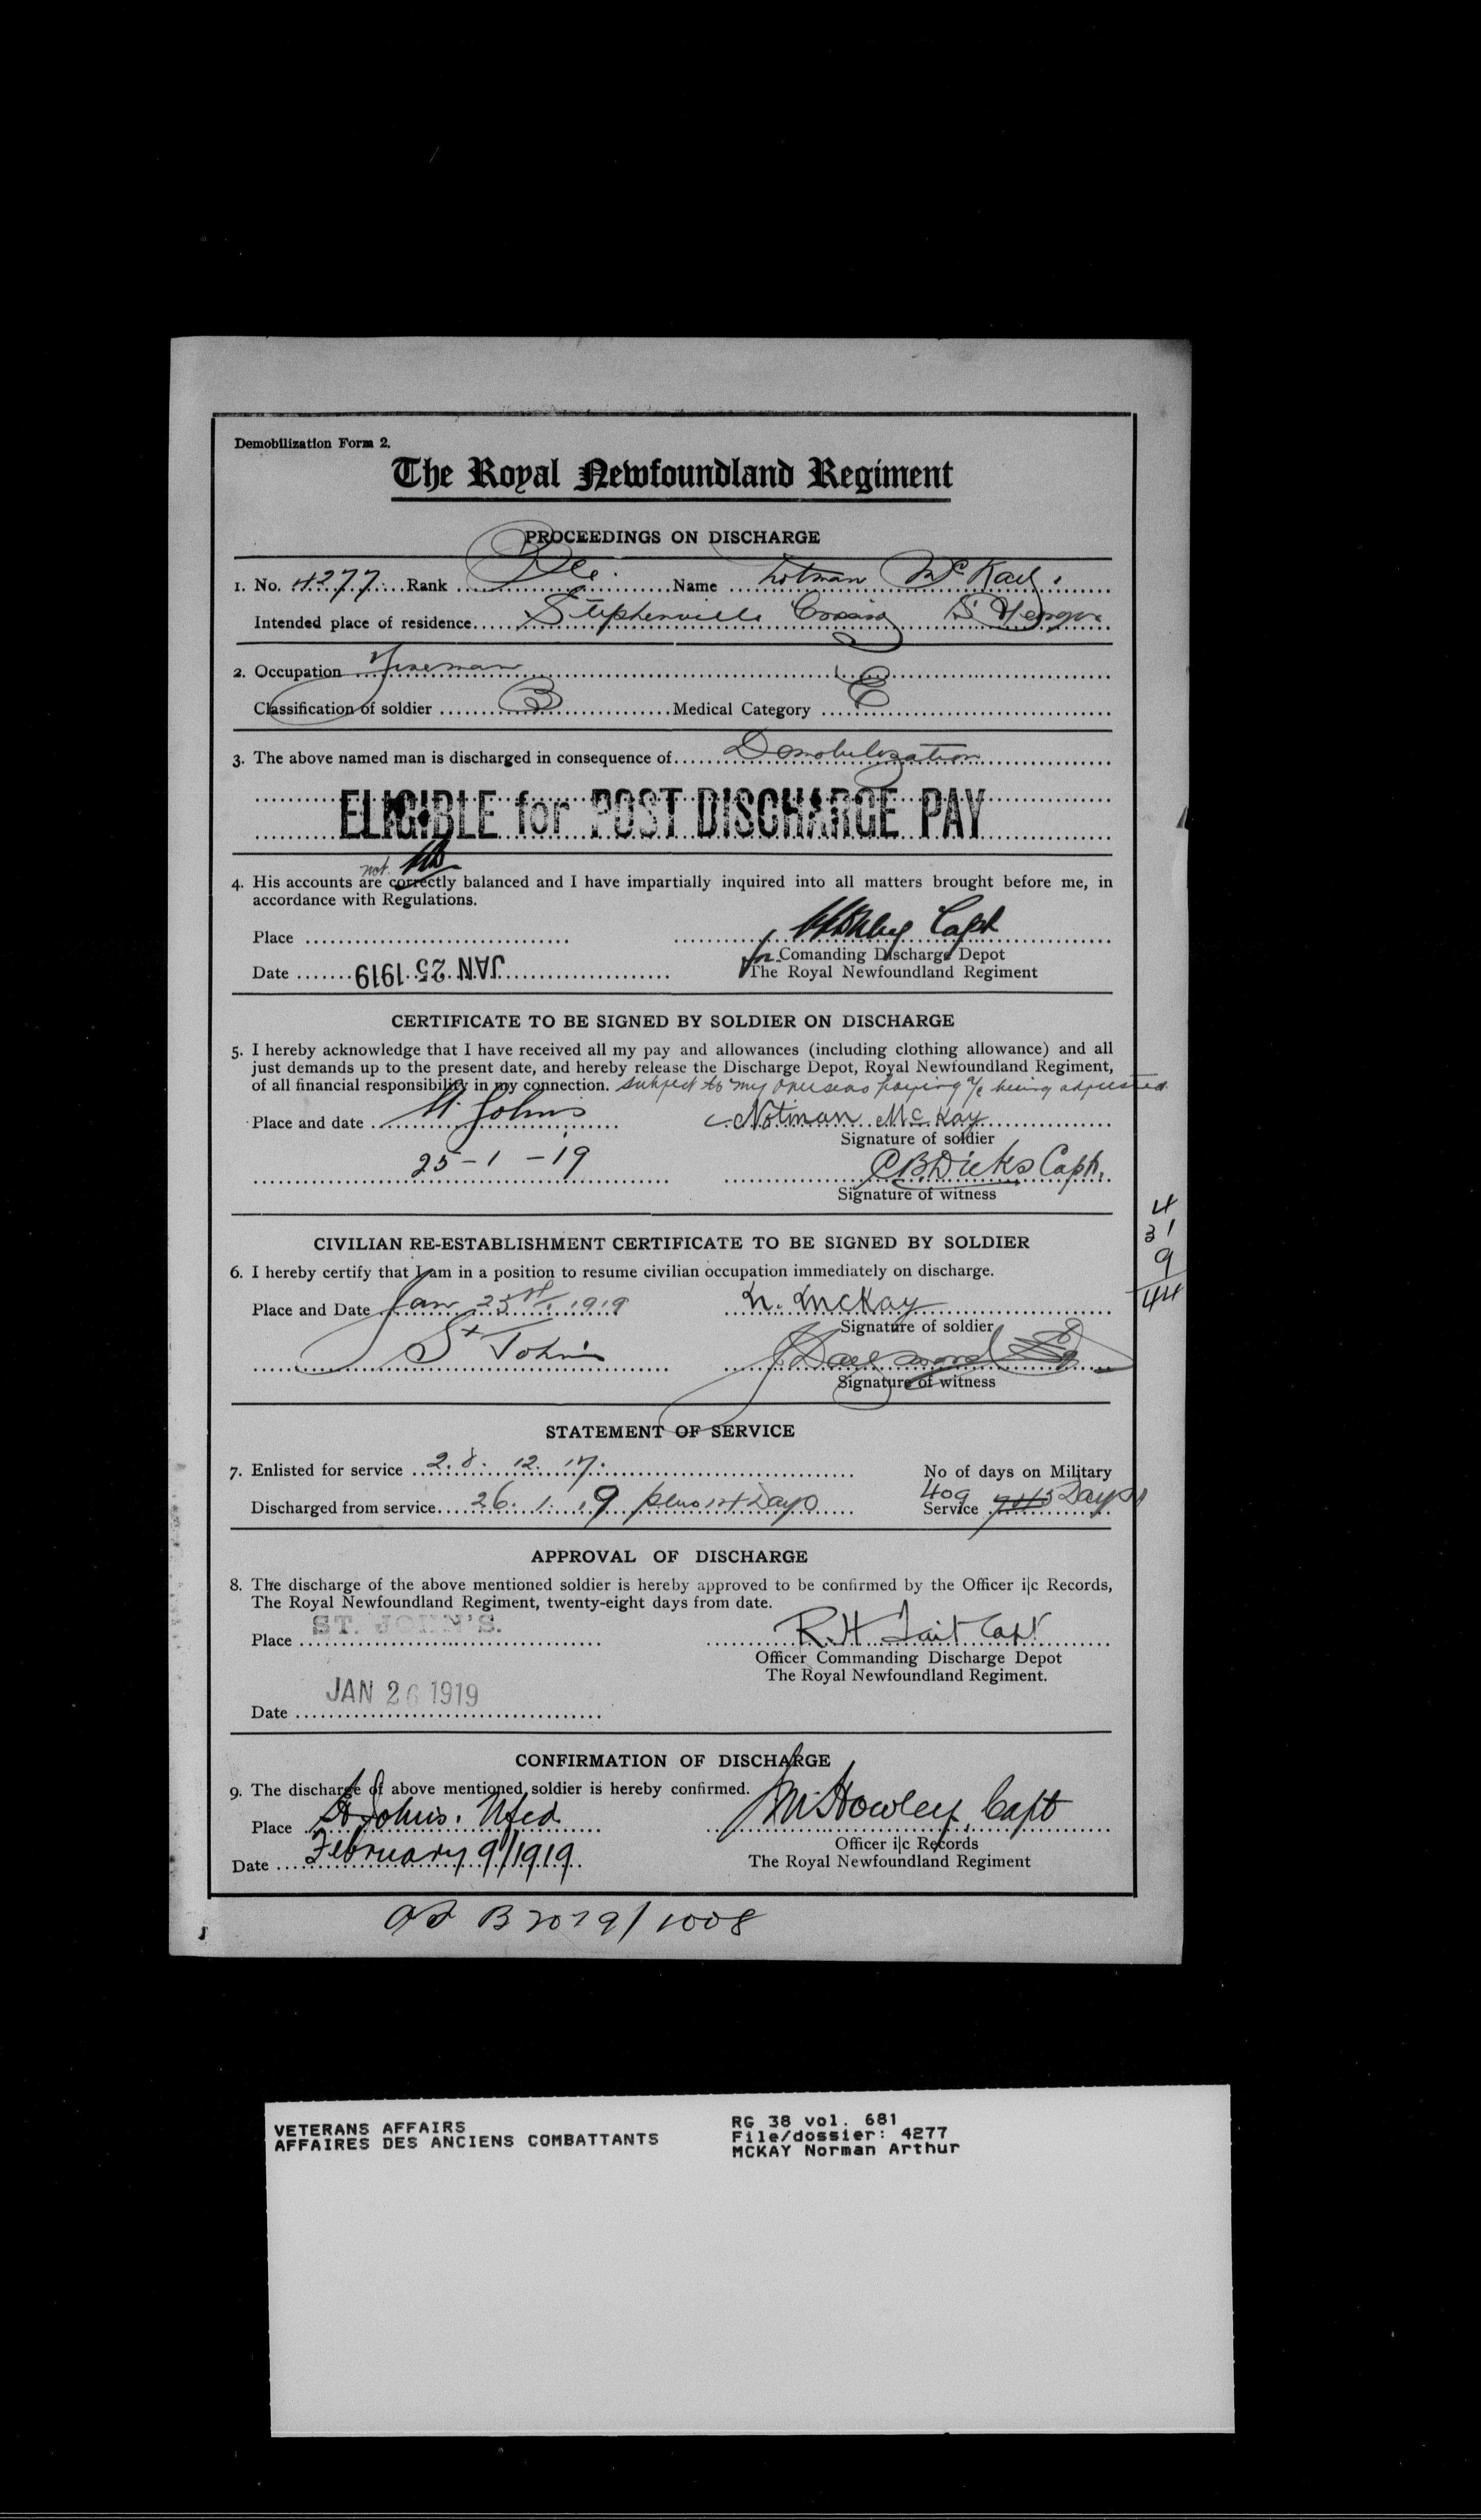 Demobilization Form 2.
The Royal Newfoundland Regiment
PROCEEDINGS ON DISCHARGE
1. No. 4277 Rank Pte. Name Notman McKay.
Intended place of residence Stephenville Crossing St Georges
2. Occupation Fireman
Classification of soldier B Medical Category E
3. The above named man is discharged in consequence of Demobilization
ELIGIBLE for POST DISCHARGE PAY
not
4. His accounts are correctly balanced and I have impartially inquired into all matters brought before me, in
accordance with Regulations.
Place Capt
for Comanding Discharge Depot
Date JAN 25 1919 The Royal Newfoundland Regiment
CERTIFICATE TO BE SIGNED BY SOLDIER ON DISCHARGE
5. I hereby acknowledge that I have received all my pay and allowances (including clothing allowance) and all
just demands up to the present date, and hereby release the Discharge Depot, Royal Newfoundland Regiment,
of all financial responsibility in my connection. subject to my overseas paying a/c being adjusted.
Place and date St. Johns Notman McKay
Signature of soldier
25-1-19 C B Dicks Capt.
Signature of witness
4
31
9
44
CIVILIAN RE-ESTABLISHMENT CERTIFICATE TO BE SIGNED BY SOLDIER
6. I hereby certify that I am in a position to resume civilian occupation immediately on discharge.
Place and Date Jan 25th 1919 N. McKay
Signature of soldier
St John's
Signature of witness
STATEMENT OF SERVICE
7. Enlisted for service 28. 12. 17. No of days on Military
Discharged from service 26. 1. 19 plus 14 Days Service 409 Days
APPROVAL OF DISCHARGE
8. The discharge of the above mentioned soldier is hereby approved to be confirmed by the Officer i|c Records,
The Royal Newfoundland Regiment, twenty-eight days from date.
Place ST. JOHN'S. R.H Tait Capt
Officer Commanding Discharge Depot
The Royal Newfoundland Regiment.
Date JAN 26 1919
CONFIRMATION OF DISCHARGE
9. The discharge of above mentioned soldier is hereby confirmed.
Place St Johns. Nfld M Howley, Capt
Officer i|c Records
Date February 9/1919 The Royal Newfoundland Regiment
B 2079/1008
VETERANS AFFAIRS
AFFAIRES DES ANCIENS COMBATTANTS
RG 38 vol. 681
File/dossier: 4277
MCKAY Norman Arthur